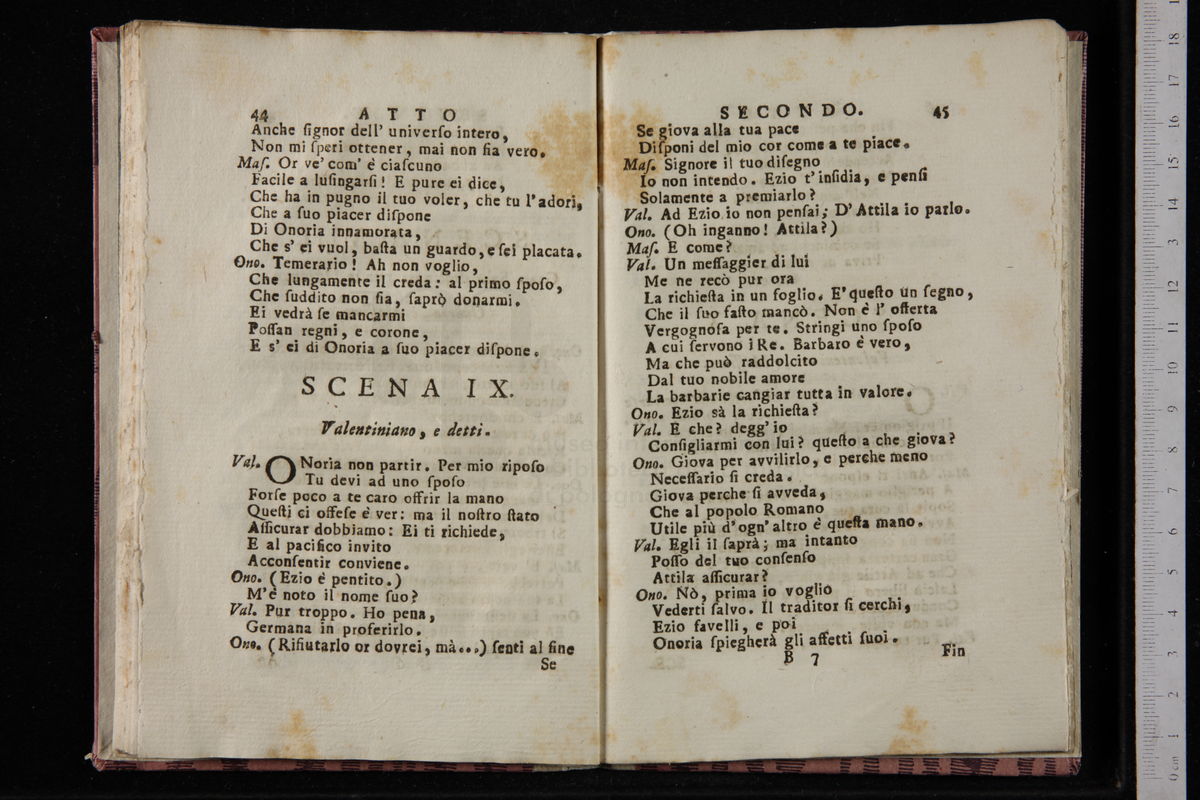 44 ATTO
Anche ſignor dell' univerſo intero,
Non mi ſperi ottener, mai non ſia vero.
Maſ. Or ve' com' è ciaſcuno
Facile a luſingarſi! E pure ei dice,
Che ha in pugno il tuo voler, che tu l'adori,
Che a ſuo piacer diſpone
Di Onoria innamorata,
Che s' ei vuol, baſta un guardo, e ſei placata.
Ono. Temerario! Ah non voglio,
Che lungamente il creda: al primo ſpoſo,
Che ſuddito non ſia, ſaprò donarmi.
Ei vedrà ſe mancarmi
Poſſan regni, e corone,
E s' ei di Onoria a ſuo piacer diſpone.
SCENA IX.
Valentiniano, e detti.
Val. ONoria non partir. Per mio ripoſo
Tu devi ad uno ſpoſo
Forſe poco a te caro offrir la mano
Queſti ci offeſe è ver: ma il noſtro ſtato
Aſſicurar dobbiamo: Ei ti richiede,
E al pacifico invito
Acconſentir conviene.
Ono. (Ezio è pentito.)
M'è noto il nome ſuo?
Val. Pur troppo. Ho pena,
Germana in proferirlo.
Ono. (Rifiutarlo or dovrei, mà...) ſenti al fine
Se
SECONDO. 45
Se giova alla tua pace
Diſponi del mio cor come a te piace.
Maſ. Signore il tuo diſegno
Io non intendo. Ezio t'inſidia, e penſi
Solamente a premiarlo?
Val. Ad Ezio io non penſai; D'Attila io parlo.
Ono. (Oh inganno! Attila?)
Maſ. E come?
Val. Un meſſaggier di lui
Me ne recò pur ora
La richieſta in un foglio. E' queſto un ſegno,
Che il ſuo faſto mancò. Non è l' offerta
Vergognoſa per te. Stringi uno ſpoſo
A cui ſervono i Re. Barbaro è vero,
Ma che può raddolcito
Dal tuo nobile amore
La barbarie cangiar tutta in valore.
Ono. Ezio sà la richieſta?
Val. E che? degg' io
Conſigliarmi con lui? queſto a che giova?
Ono. Giova per avvilirlo, e perche meno
Neceſſario ſi creda.
Giova perche ſi avveda,
Che al popolo Romano
Utile più d'ogn' altro è queſta mano.
Val. Egli il ſaprà; ma intanto
Poſſo del tuo conſenſo
Attila aſſicurar?
Ono. Nò, prima io voglio
Vederti ſalvo. Il traditor ſi cerchi,
Ezio favelli, e poi
Onoria ſpiegherà gli affetti ſuoi.
B 7 Fin